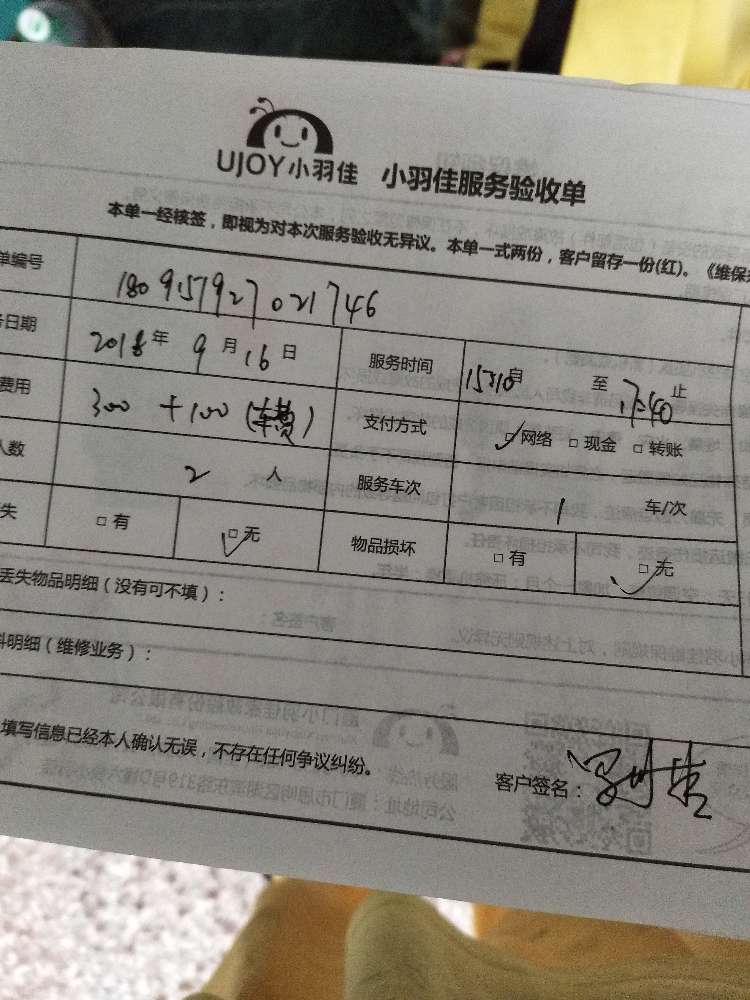 UJOY小羽佳 小羽佳服务验收单
本单一经核签，即视为对本次服务验收无异议。本单一式两份，客户留存一份(红)。《维保条
单编号 180915792702​1746
务日期 2018年 9月 16日 服务时间 15:10自 至 17:40止
费用 300 +100 (车费) 支付方式 □网络 □现金 □转账
人数 2 人 服务车次 1 车/次
失 □有 □无 物品损坏 □有 □无
丢失物品明细（没有可不填）：
料明细（维修业务）：
填写信息已经本人确认无误，不存在任何争议纠纷。
客户签名：